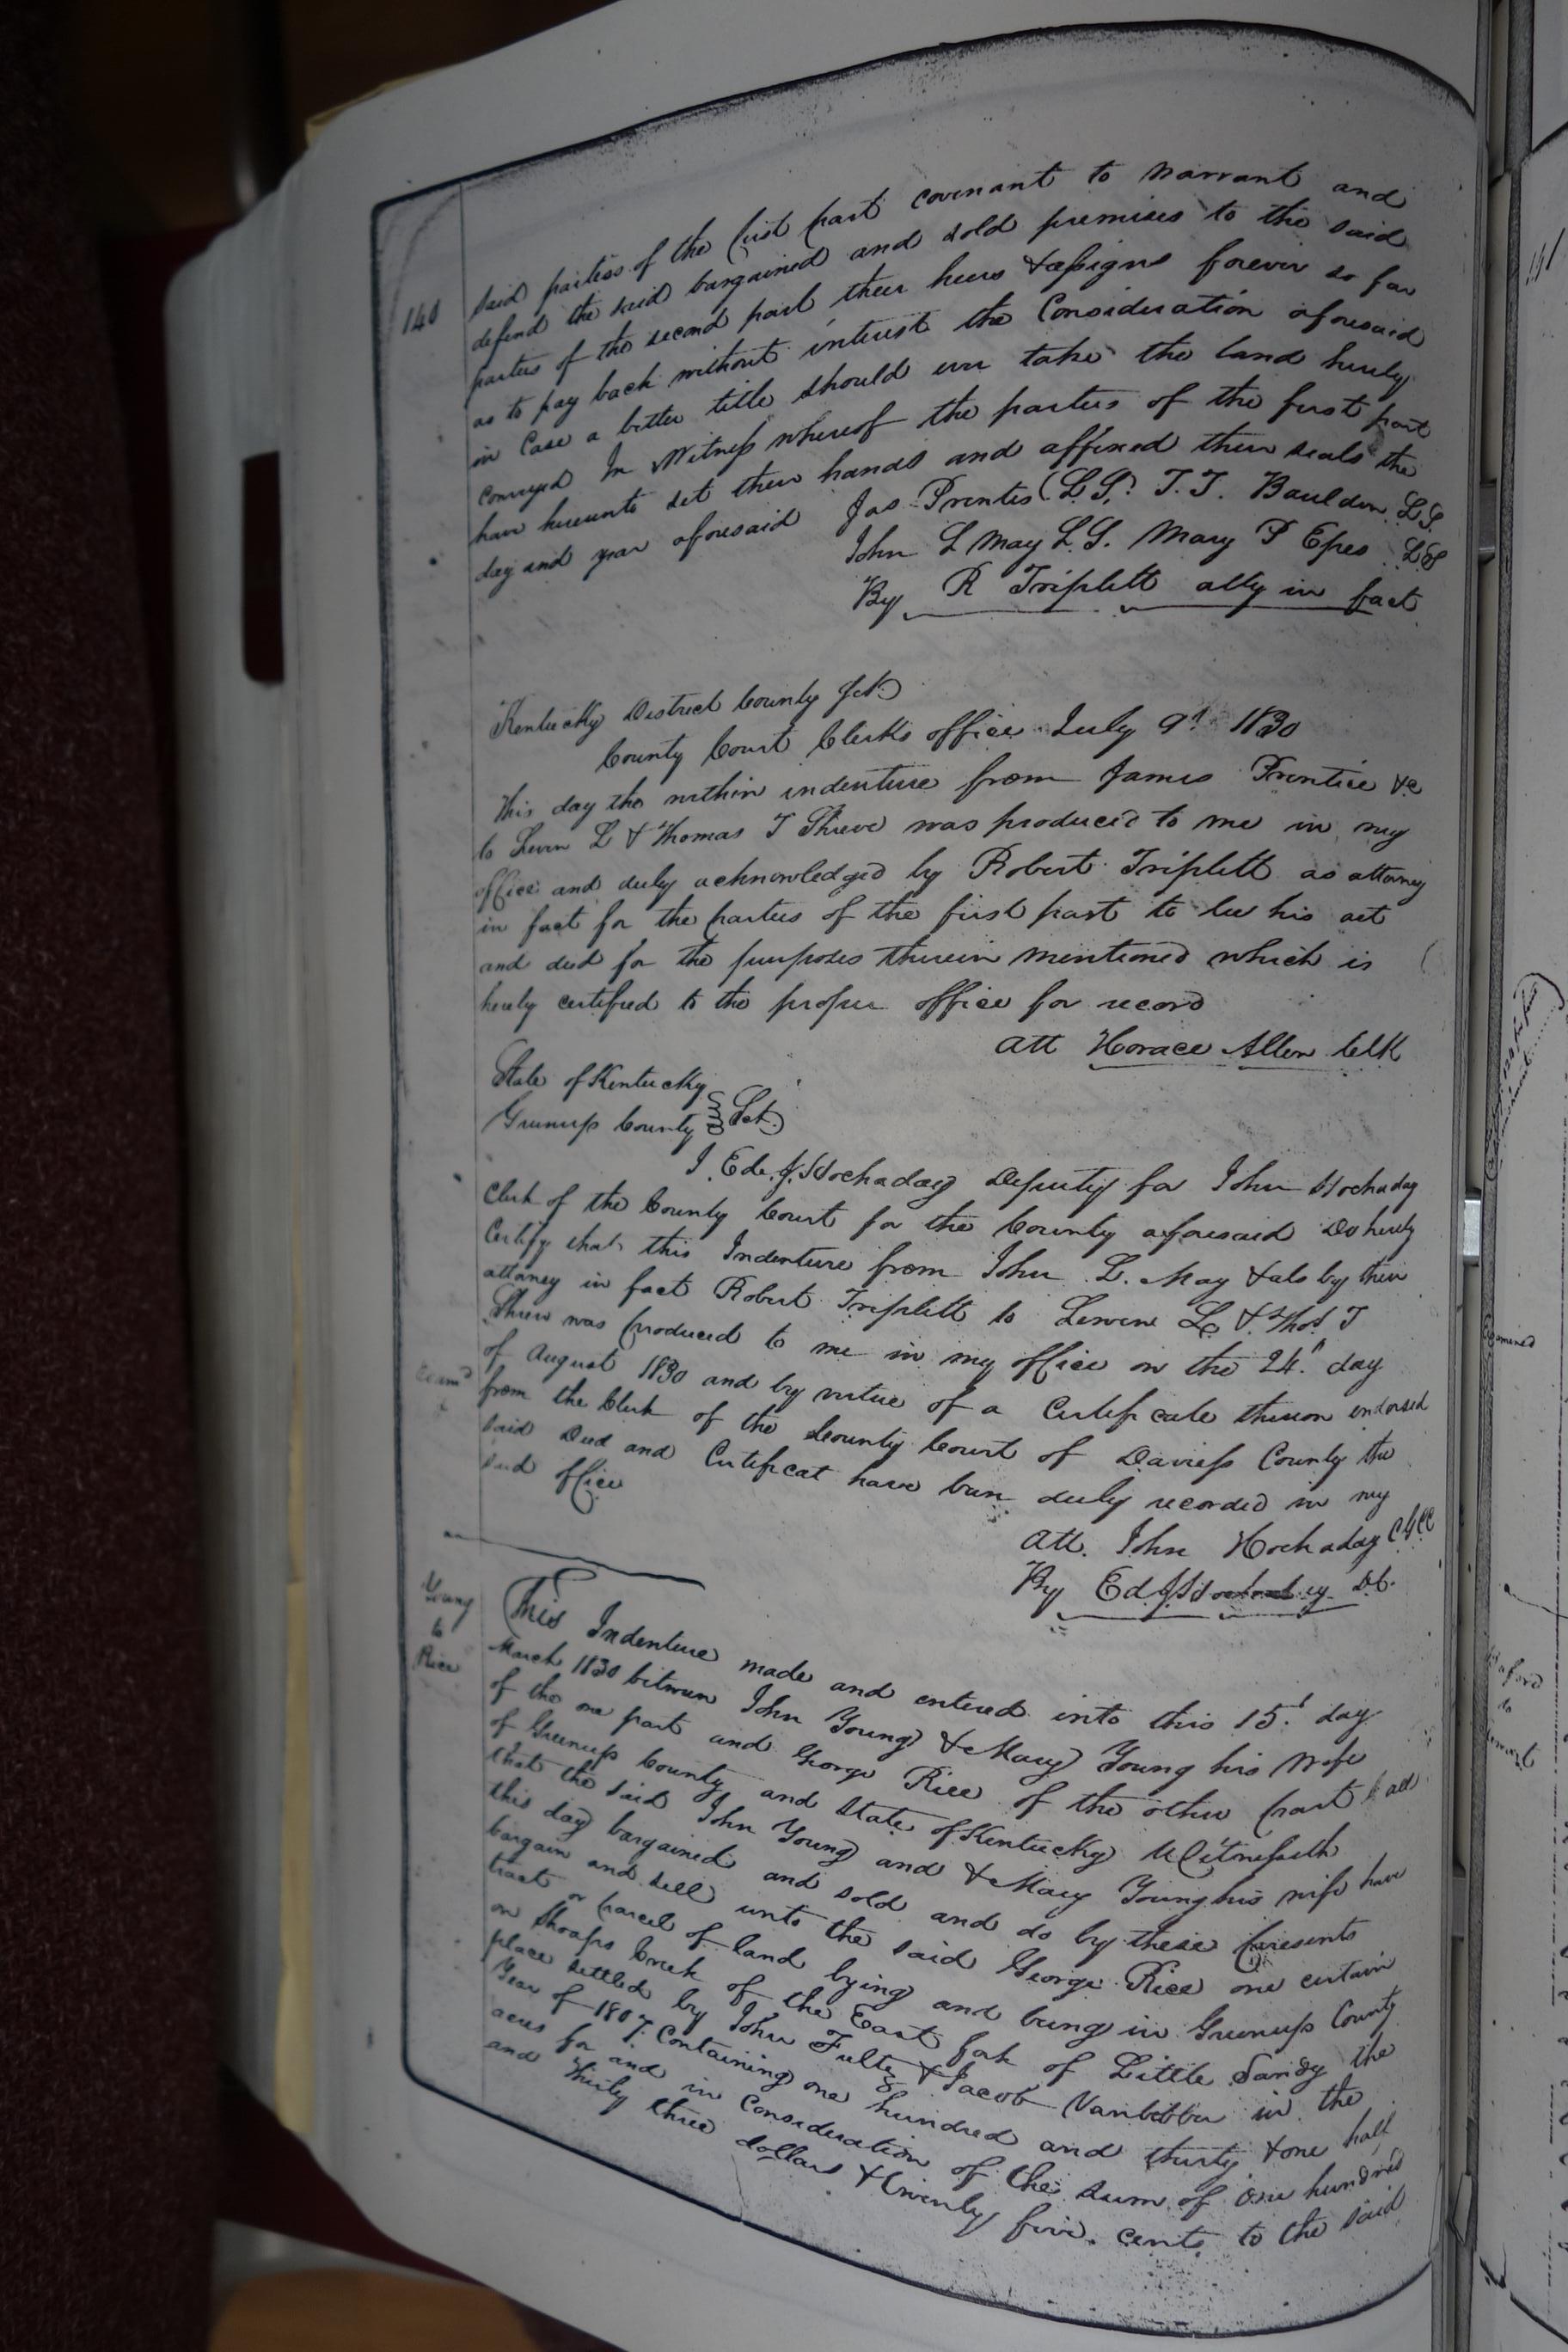 140
said parties of the first part covenant to warrant and
defend the said bargained and sold premises to the said
parties of the second part their heirs & assigns forever so far
as to pay back without interest the Consideration aforesaid
in Case a better title should ever take the land hereby
conveyed In Witness whereof the parties of the first part
have hereunto set their hands and affixed their seals the
day and year aforesaid Jas Prentis (L.S.) T.T. Bauldin L.S.
John L May L.S. Mary P Epes L.S
By R Triplett atty in fact
Kentucky District County Sct
County Court Clerks office July 9th 1830
This day the within indenture from James Prentice &c
to Levin L & Thomas T Shreve was produced to me in my
office and duly acknowledged by Robert Triplett as attorney
in fact for the parties of the first part to bee his act
and deed for the purposes therein mentioned which is
hereby certified to the proper office for record
Att Horace Allen Clk
State of Kentucky
Greenup County Sct.
I. Ed. J. Hockaday Deputy for John Hockaday
Clerk of the County Court for the County aforesaid Do hereby
Certify that this Indenture from John L. May & als by their
attorney in fact Robert Triplett to Leven L & Thos T
Shreve was produced to me in my office on the 24th day
of August 1830 and by virtue of a Certificate thereon endorsed
from the Clerk of the County Court of Daviess County the
said Deed and Certificat have been duly recorded in my
said office
Exam'd
Att. John Hockaday CGCC
By Ed J Hockaday Dc.
Young
to
Rice
This Indenture made and entered into this 15th day
March 1830 between John Young & Mary Young his Wife
of the one part and George Rice of the other part all
of Greenup County and State of Kentucky Witnesseth
that the said John Young and & Mary Young his wife have
this day bargained and sold and do by these presents
bargain and sell unto the said George Rice one certain
tract or parcel of land lying and being in Greenup County
on Shoaps Creek of the East fork of Little Sandy the
place settled by John Fultz & Jacob Vanbibber in the
Year of 1807. Containing one hundred and thirty & one half
acres for and in Consideration of the sum of one hundred
and thirty three dollars & twenty five cents to the said